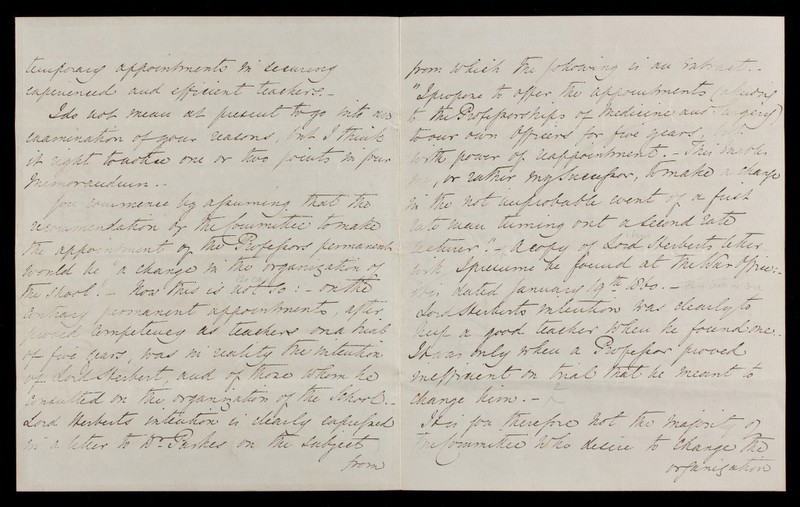 temporary appointments in securing
experienced and efficient teachers. -
I do not mean at present to go into an
examination of your reasons, but I think
it right to notice one or two points in your
Memorandum. -
You commence by assuming that the
recommendation of the Committee to make
the appointment of the Professors permanent
would be "a change in the organization of
the School". - Now this is not so: - on the
contrary permanent appointments, after
proved competency as teachers on a trial
of five years, was in reality the intention
of Lord Herbert, and of those whom he
consulted on the organization of the School. -
Lord Herberts intention is clearly expressed
in a letter to Dr. Parkes on the subject
from
from which the following is an extract. -
"I propose to offer the appointments (
to the Professorships of Medicine and Surgery)
to our own Officers for five years,
with power of reappointment. - This
or rather my Successor, to make a change
in the not improbable event of a first
rate man turning out a second rate
lecturer". - A copy of Lord Herberts letter
will I presume be found at the War Office: -
it is dated January 19th 1860. -
Lord Herberts intention was clearly to
keep a good teacher when he found one.
It was only when a Professor proved
inefficient on trial that he meant to
change him. -
It is you therefore not the majority of
the Committee who desire to change the
organisation